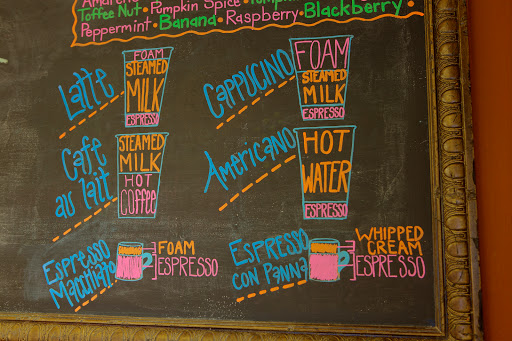 Toffee Nut • Pumpkin Spice •
Peppermint • Banana • Raspberry • Blackberry •
Latte
FOAM
STEAMED
MILK
ESPRESSO
CAPPUCINO
FOAM
STEAMED
MILK
ESPRESSO
Cafe
au lait
STEAMED
MILK
HOT
Coffee
Americano
HOT
WATER
ESPRESSO
Espresso
Macchiato
FOAM
ESPRESSO
Espresso
con Panna
WHIPPED
CREAM
ESPRESSO